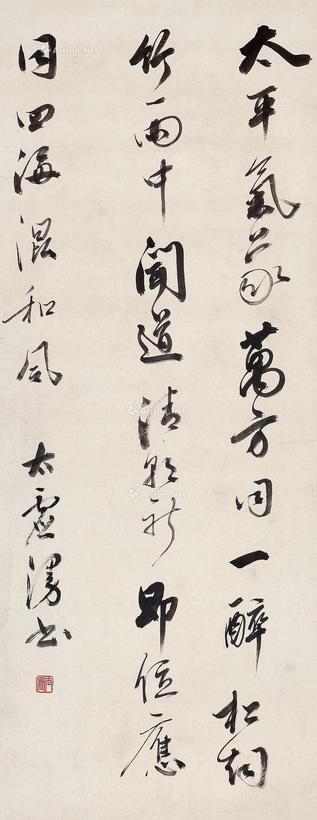 太平氣象萬方同一醉松
竹雨中聞道清朝新即位應
同四海混和風 太虛漫書
Artron.Net